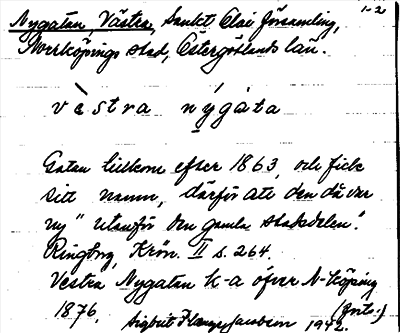 1-2
Nygatan Västra, Sankt Olai församling,
Norrköpings stad, Östergötlands län.
vèstra nýgàta
Gatan tillkom efter 1863, och fick
sitt namn, därför att den då var
ny "utanför den gamla stadsdelen".
Ringborg, Krön. II s. 264.
Vestra Nygatan k-a öfver N-köping
1876.
(forts.)
Sigbrit Plaenge Jacobson 1942.